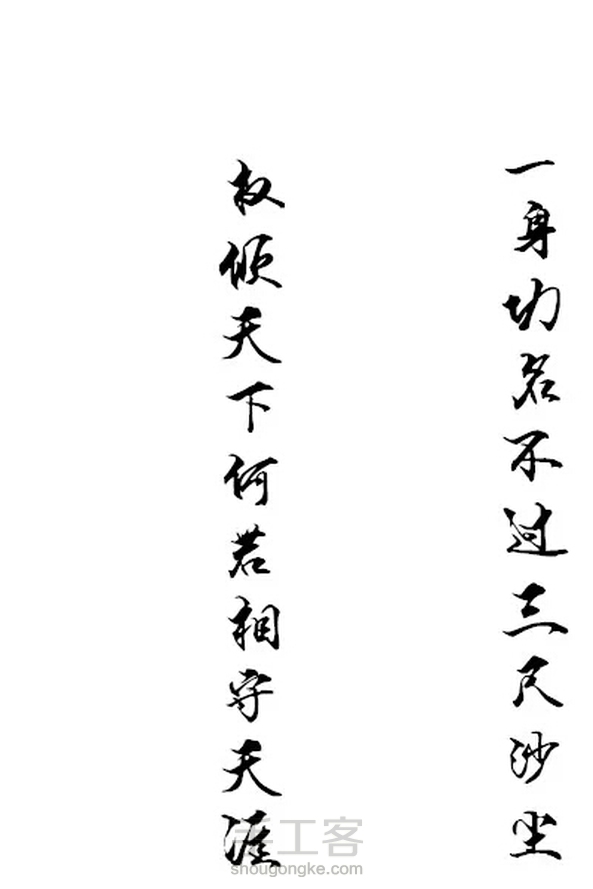 一身功名不过三尺沙尘
权倾天下何若相守天涯
手工客
shougongke.com